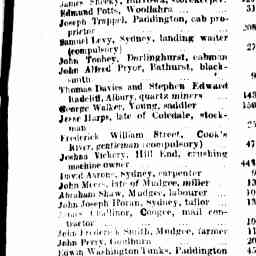 James Sheehy, Burrowa, storekeeper
Edmund Potts, Woollahra ...
Joseph Trappel, Paddington, cab pro-
prietor ... 208
Samuel Levy, Sydney, landing waiter
(compulsory) 27
John Toohey, Darlinghurst, cabman
John Alfred Pryor, Bathurst, black-
smith ... 9
Thomas Davies and Stephen Edward
Radclid, Albury, quartz miners ... 143
George Walker, Young, saddler 150
Jesse Harps, late of Coledale, stock-
man 25
Frederick William Street, Cook's
River, gentleman (compulsory) 47
Joshua Vickery, Hill End, crushing
machine owner 443
David Aarons, Sydney, carpenter 9
John Meers, late of Mudgee, miller 13
Abraham Shaw, Mudgee, labourer 10
John Joseph Horan, Sydney, tailor 13
James Challinor, Coogee, mail con-
tractor ...
John Frederick Smith, Mudgee, farmer 17
John Percy, Goulburn 20
Edwin Washington Tunks, Paddington 45